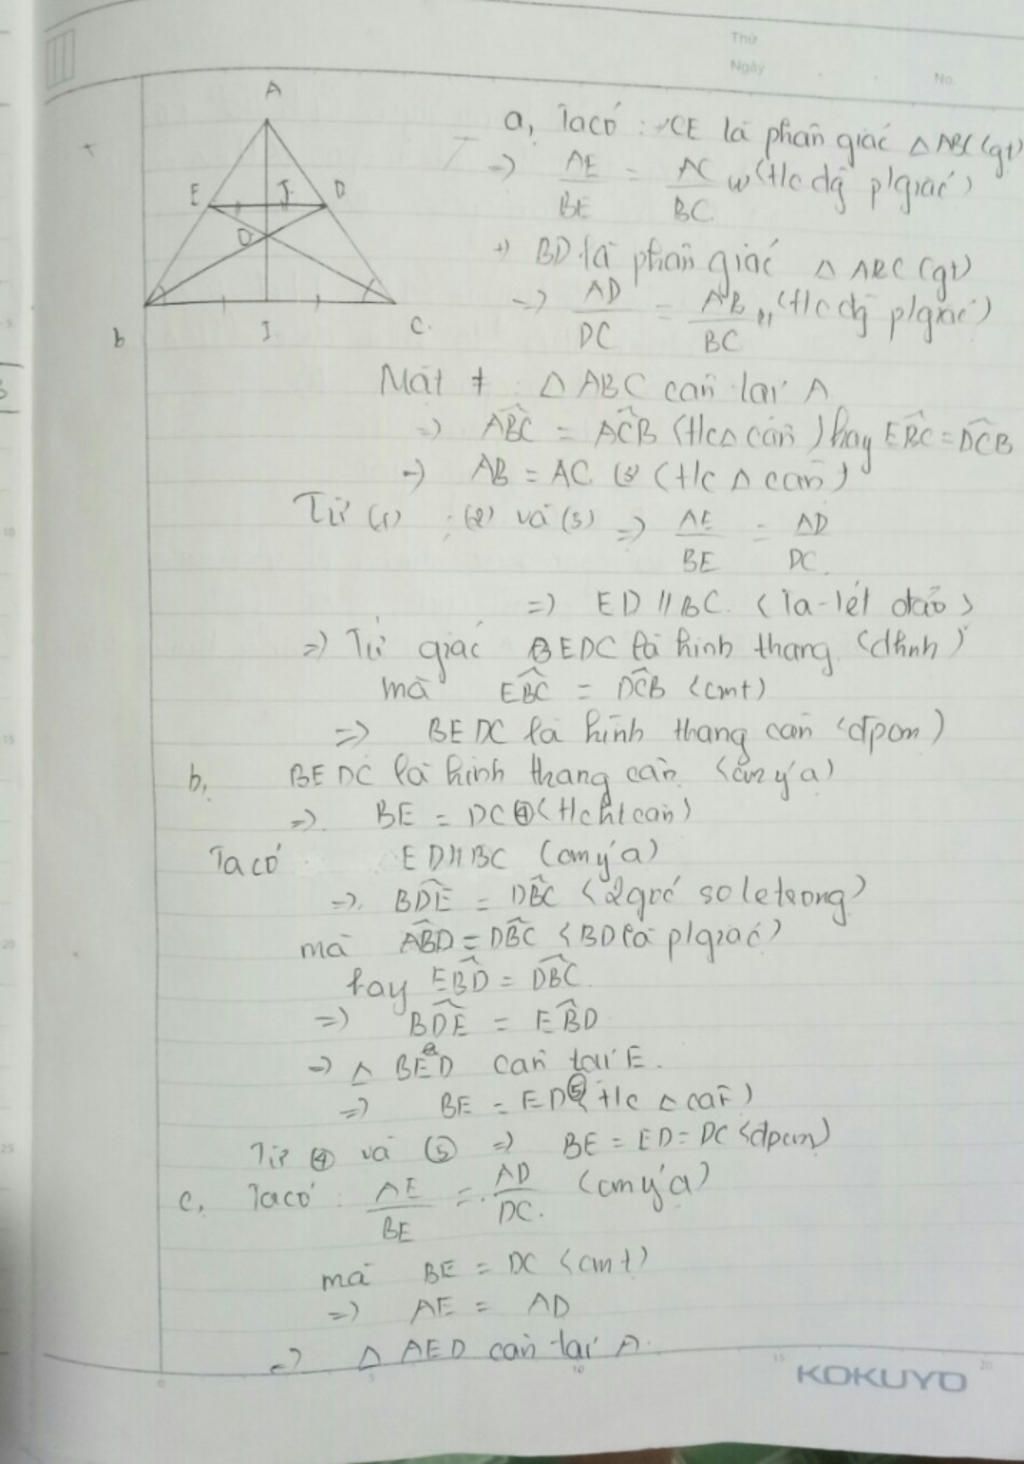 Thứ
Ngày
No.
A
E
J
D
O
b
I
C.
a, Ta có : + CE là phân giác △ ABC (gt)
=> AE/BE = AC/BC (1) (t/c đg p/giác)
+) BD là phân giác △ ABC (gt)
=> AD/DC = AB/BC (2) (t/c đg p/giác)
Mặt ≠ : △ ABC cân tại A
=> ABC = ACB (t/c △ cân) hay EBC = DCB
=> AB = AC (3) (t/c △ cân)
Từ (1) ; (2) và (3) => AE/BE = AD/DC.
=> ED // BC. (Ta-lét đảo)
=> Tứ giác BEDC là hình thang (dhnb)
mà EBC = DCB (cmt)
=> BEDC là hình thang cân (đpcm)
b, BEDC là hình thang cân (cm ý a)
=> BE = DC ④ (t/c ht cân)
Ta có ED // BC (cm ý a)
=> BDE = DBC (2 góc so le trong)
mà ABD = DBC (BD là p/giác)
hay EBD = DBC
=> BDE = EBD
=> △ BED cân tại E.
=> BE = ED ⑤ (t/c △ cân)
Từ ④ và ⑤ => BE = ED = DC (đpcm)
c, Ta có : AE/BE = AD/DC. (cm ý a)
mà BE = DC (cmt)
=> AE = AD
=> △ AED cân tại A.
KOKUYO